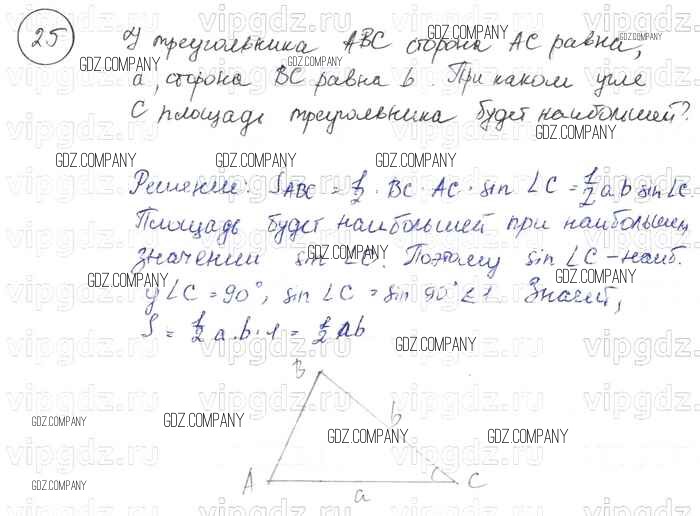 25 У треугольника ABC сторона AC равна,
a, сторона BC равна b. При каком угле
C площадь треугольника будет наибольшей?
Решение: S ABC = 1/2 · BC · AC · sin ∠C = 1/2 a.b sin∠C.
Площадь будет наибольшей при наибольшем
значении sin ∠C. Поэтому sin ∠C – наиб.
у ∠C = 90°, sin ∠C = sin 90° ≤ 1. Значит,
S = 1/2 a.b·1 = 1/2 ab
B
b
A a C
GDZ.COMPANY
vipgdz.ru